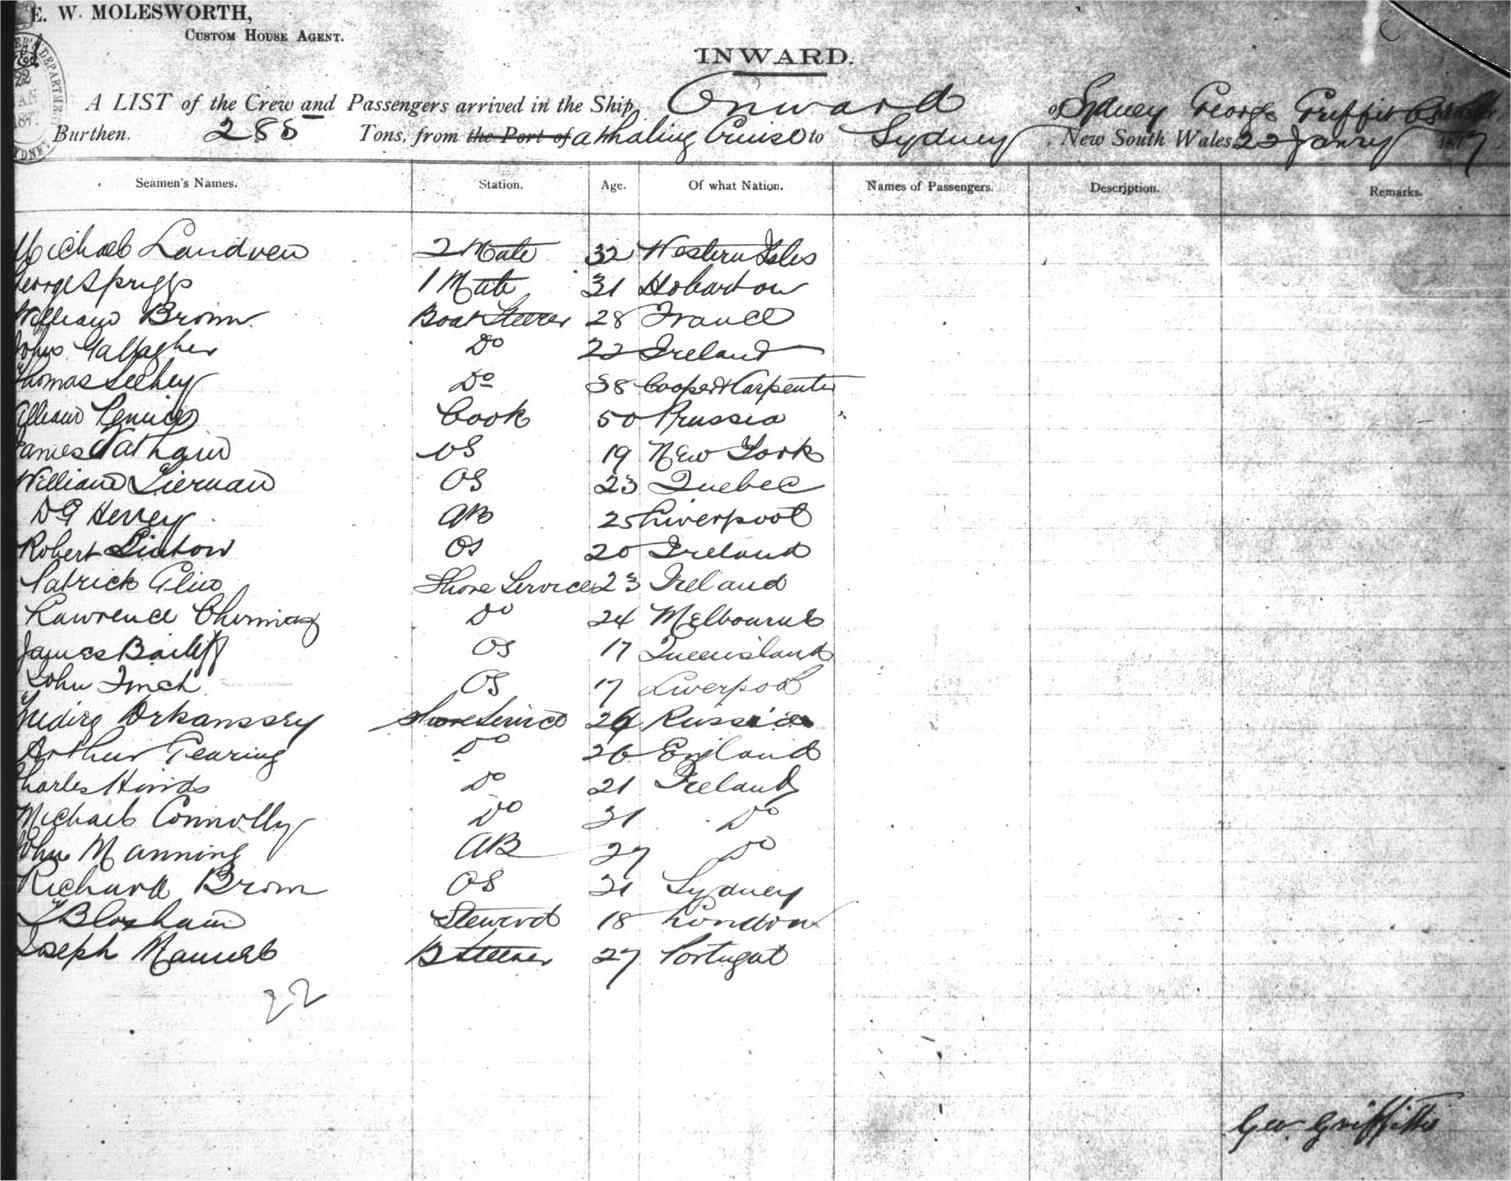 E. W. MOLESWORTH,
CUSTOM HOUSE AGENT.
INWARD.
A LIST of the Crew and Passengers arrived in the Ship, Onward of Sydney George Griffiths Master
Burthen. 285 Tons, from the Port of a Whaling Cruise to Sydney New South Wales 22 Janry 187
Seamen's Names. Station. Age. Of what Nation. Names of Passengers. Description. Remarks.
Michael 2 Mate 32 Western Isles
George Spriggs 1 Mate 31 Hobarton
William Brown Boat Steerer 28 France
John Gallagher Do 22 Ireland
Thomas Do 38 Cooper & Carpenter
Cook 50 Prussia
James OS 19 New York
William Tiernan OS 23 Quebec
D G Hervey AB 25 Liverpool
Robert Linton OS 20 Ireland
Patrick Shore Service 23 Ireland
Lawrence Do 24 Melbourne
James Bailiff OS 17 Queensland
John Finch OS 17 Liverpool
Arkanssey Shore Service 26 Russia
Arthur Gearing Do 26 England
Charles Hinds Do 21 Ireland
Michael Connolly Do 31 Do
John Manning AB 27 Do
Richard Brown OS 21 Sydney
Bloxham Steward 18 London
Joseph Manuel B Steerer 27 Portugal
22
Geo. Griffiths